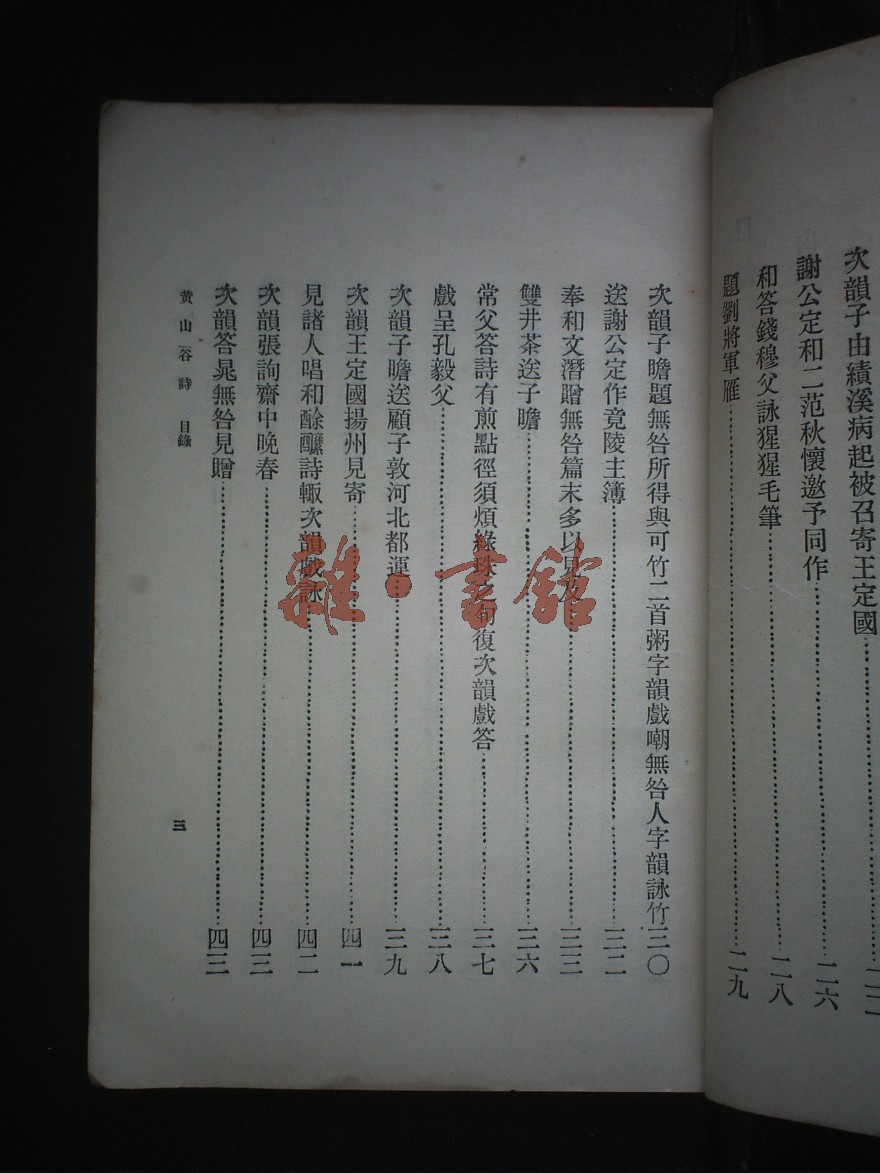 次韻子由績溪病起被召寄王定國
謝公定和二范秋懷邀予同作……二六
和答錢穆父詠猩猩毛筆……二八
題劉將軍雁……二九
次韻子瞻題無咎所得與可竹二首粥字韻戲嘲無咎人字韻詠竹三〇
送謝公定作竟陵主簿……三二
奉和文潛贈無咎篇末多以見及……三三
雙井茶送子瞻……三六
常父答詩有煎點徑須煩綠珠之句復次韻戲答……三七
戲呈孔毅父……三八
次韻子瞻送顧子敦河北都運……三九
次韻王定國揚州見寄……四一
見諸人唱和酴醾詩輙次韻戲詠……四二
次韻張詢齋中晚春……四三
次韻答晁無咎見贈……四三
黃山谷詩 目錄
三
雜·書館